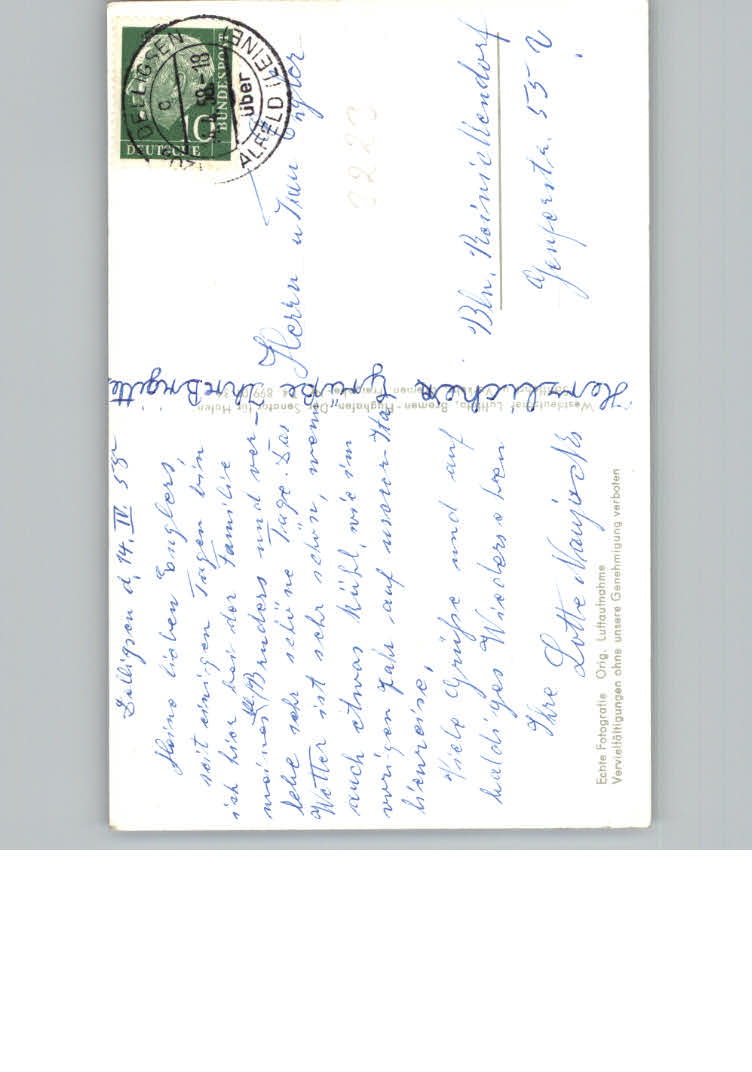 Delligsen d. 14. IV. 58
Meine lieben Englers,
seit einigen Tagen bin
ich hier bei der Familie
meines Bruders und ver-
lebe sehr schöne Tage. Das
Wetter ist sehr schön, wenn
auch etwas kühl, wie im
vorigen Jahr auf unserer Ita-
lienreise.
Viele Grüße und auf
baldiges Wiedersehen
Ihre
Lotte Naujocks
Herzlichen Grüße Ihre Brigitte
Echte Fotografie Orig. Luftaufnahme
Vervielfältigungen ohne unsere Genehmigung verboten
Westdeutscher Luftfoto, Bremen-Flughafen Der Senator für Häfen
DELLIGSEN
über
ALFELD (LEINE)
58-18
10
DEUTSCHE
BUNDESPOST
Herrn u Frau Engler
0220
Bln. Reinickendorf
Genferstr. 55 V